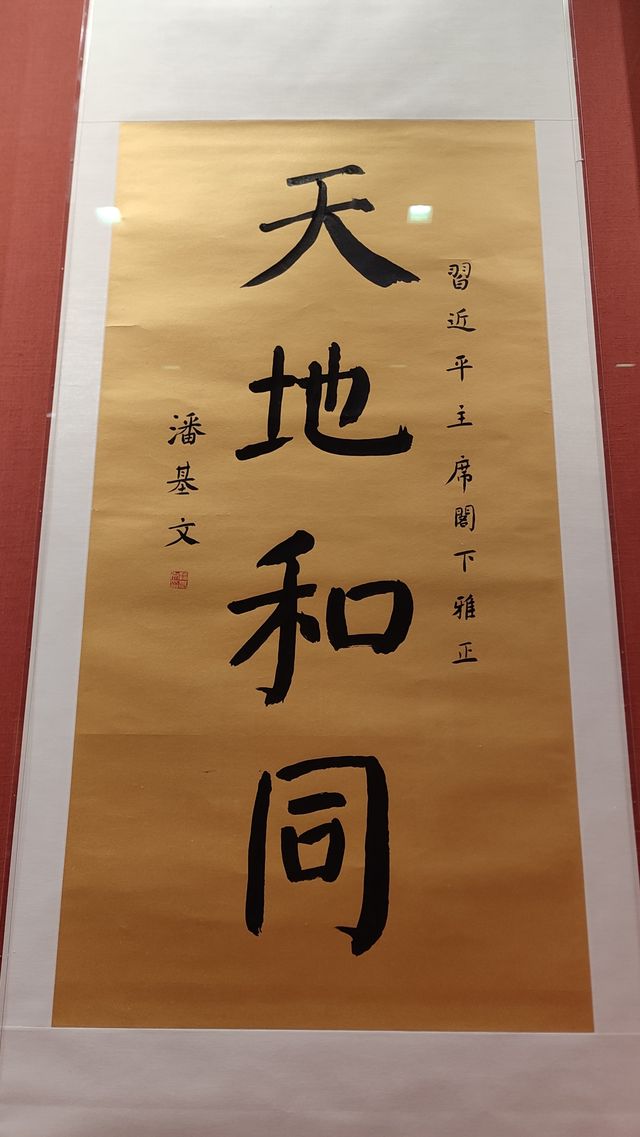 習近平主席閣下雅正
天地和同
潘基文